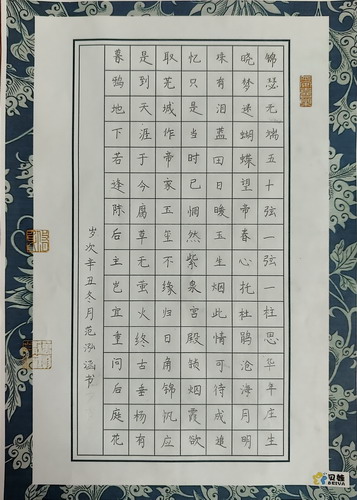 锦瑟无端五十弦一弦一柱思华年庄生
晓梦迷蝴蝶望帝春心托杜鹃沧海月明
珠有泪蓝田日暖玉生烟此情可待成追
忆只是当时已惘然紫泉宫殿锁烟霞欲
取芜城作帝家玉玺不缘归日角锦帆应
是到天涯于今腐草无萤火终古垂杨有
暮鸦地下若逢陈后主岂宜重问后庭花
岁次辛丑冬月范泓涵书